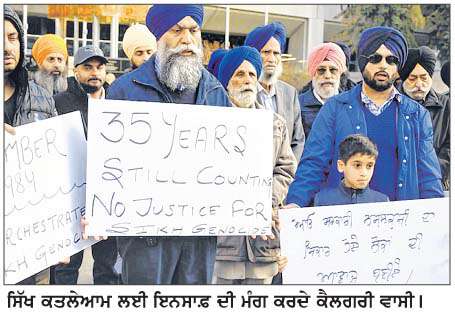 MBER
984
RCHESTRATE
KH GENOC
35 YEARS
STILL COUNTING
NO JUSTICE FOR
SIKH GENOCIDE
ਆਓ ਸਰਕਾਰੀ ਨਸਲਕੁਸ਼ੀ ਦਾ
ਸ਼ਿਕਾਰ ਹੋਏ ਲੋਕਾਂ ਦੀ
ਆਵਾਜ਼ ਬਣੀਏ
ਸਿੱਖ ਕਤਲੇਆਮ ਲਈ ਇਨਸਾਫ਼ ਦੀ ਮੰਗ ਕਰਦੇ ਕੈਲਗਰੀ ਵਾਸੀ।